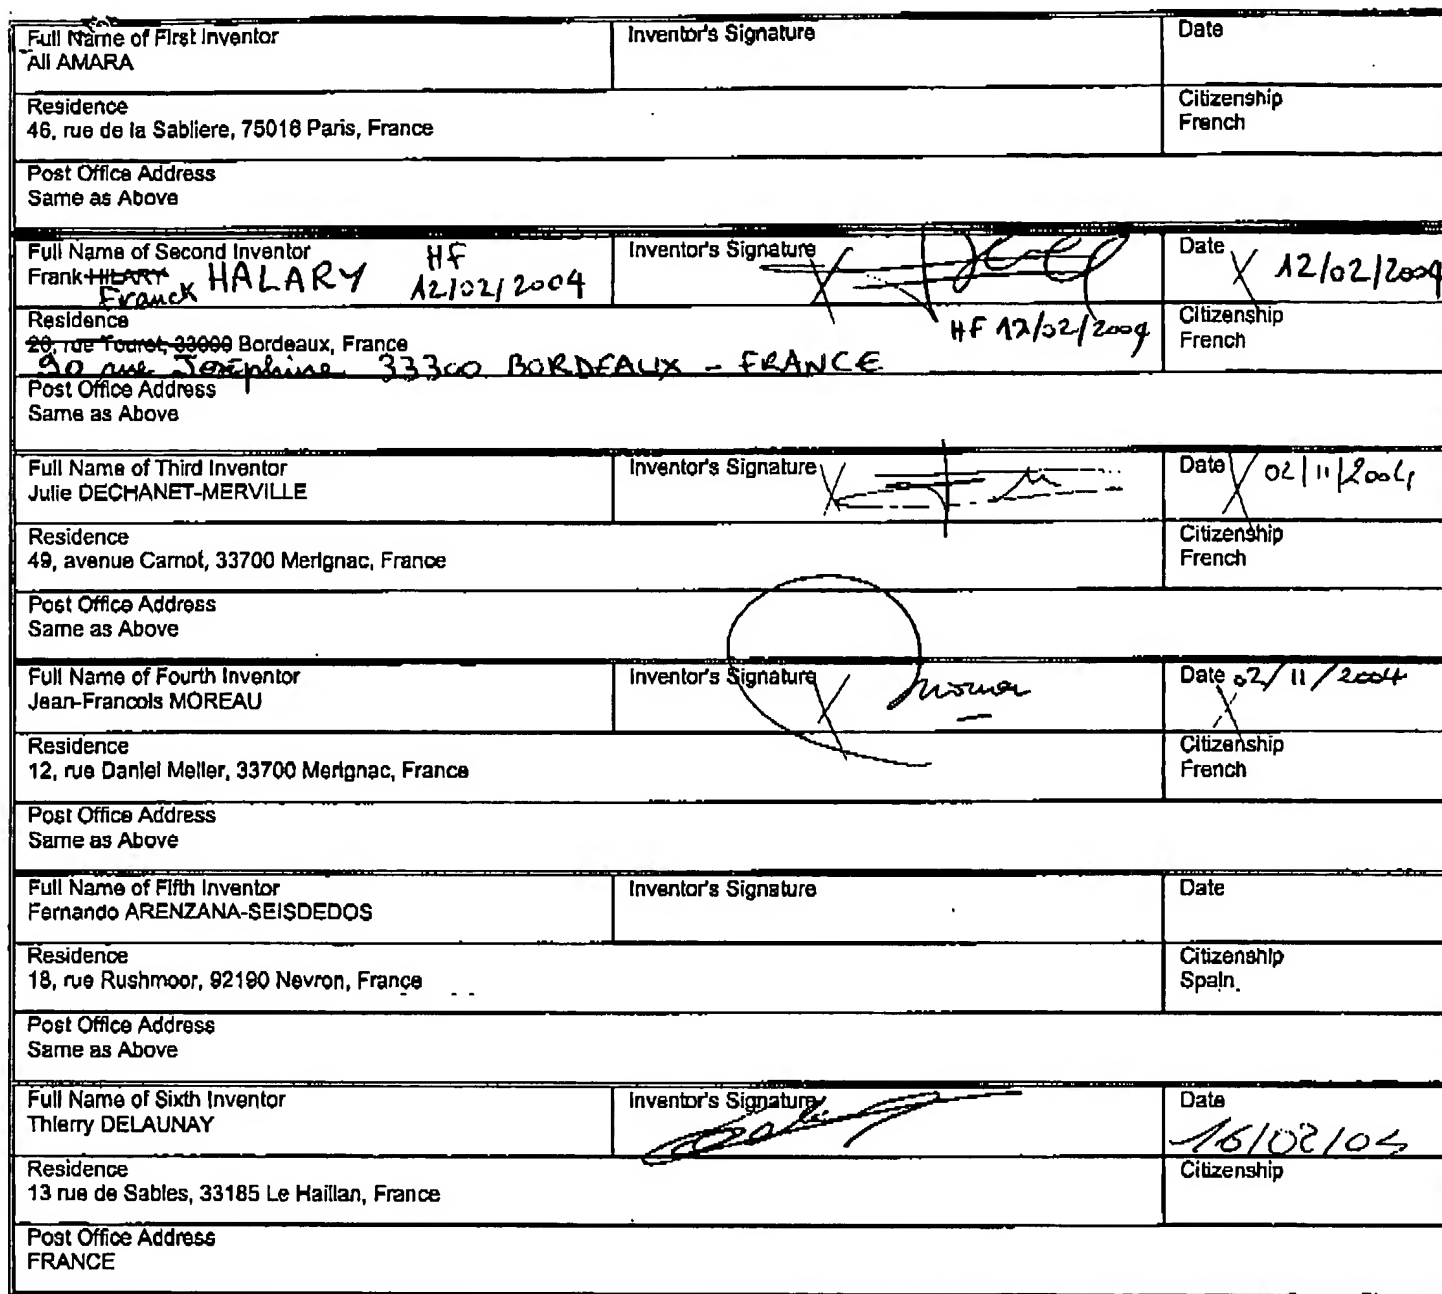 Full Name of First Inventor
Ali AMARA
Inventor's Signature
Date
Residence
46, rue de la Sabliere, 75018 Paris, France
Citizenship
French
Post Office Address
Same as Above
Full Name of Second Inventor
Frank HILARY HALARY
Franck
HF
12/02/2004
Inventor's Signature
HF 12/02/2004
Date
12/02/2004
Residence
20, rue Touret, 33000 Bordeaux, France
90 rue Joséphine 33300 BORDEAUX - FRANCE
Citizenship
French
Post Office Address
Same as Above
Full Name of Third Inventor
Julie DECHANET-MERVILLE
Inventor's Signature
Date
02/11/2004
Residence
49, avenue Carnot, 33700 Merignac, France
Citizenship
French
Post Office Address
Same as Above
Full Name of Fourth Inventor
Jean-Francois MOREAU
Inventor's Signature
Date 02/11/2004
Residence
12, rue Daniel Meller, 33700 Merignac, France
Citizenship
French
Post Office Address
Same as Above
Full Name of Fifth Inventor
Fernando ARENZANA-SEISDEDOS
Inventor's Signature
Date
Residence
18, rue Rushmoor, 92190 Nevron, France
Citizenship
Spain
Post Office Address
Same as Above
Full Name of Sixth Inventor
Thierry DELAUNAY
Inventor's Signature
Date
16/02/04
Residence
13 rue de Sables, 33185 Le Haillan, France
Citizenship
Post Office Address
FRANCE